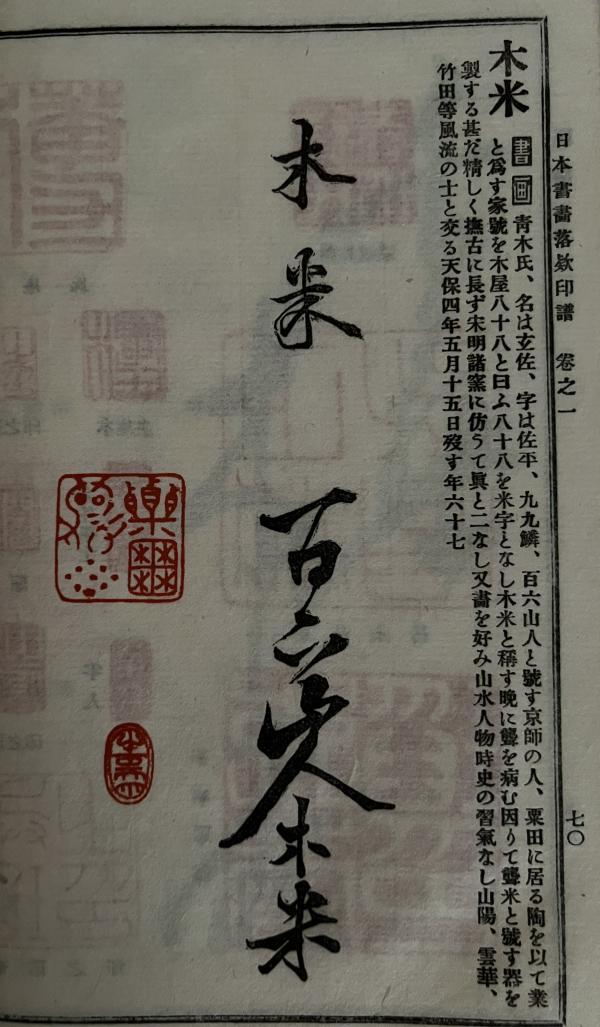 日本書畵落欵印譜　卷之一
七〇
木米
書 画
青木氏、名は玄佐、字は佐平、九九鱗、百六山人と號す京師の人、粟田に居る陶を以て業
と爲す家號を木屋八十八と曰ふ八十八を米字となし木米と稱す晩に聾を病む因りて聾米と號す器を
製する甚だ精しく撫古に長ず宋明諸窯に仿うて眞と二なし又畵を好み山水人物時史の習氣なし山陽、雲華、
竹田等風流の士と交る天保四年五月十五日歿す年六十七
木米
百六山人木米